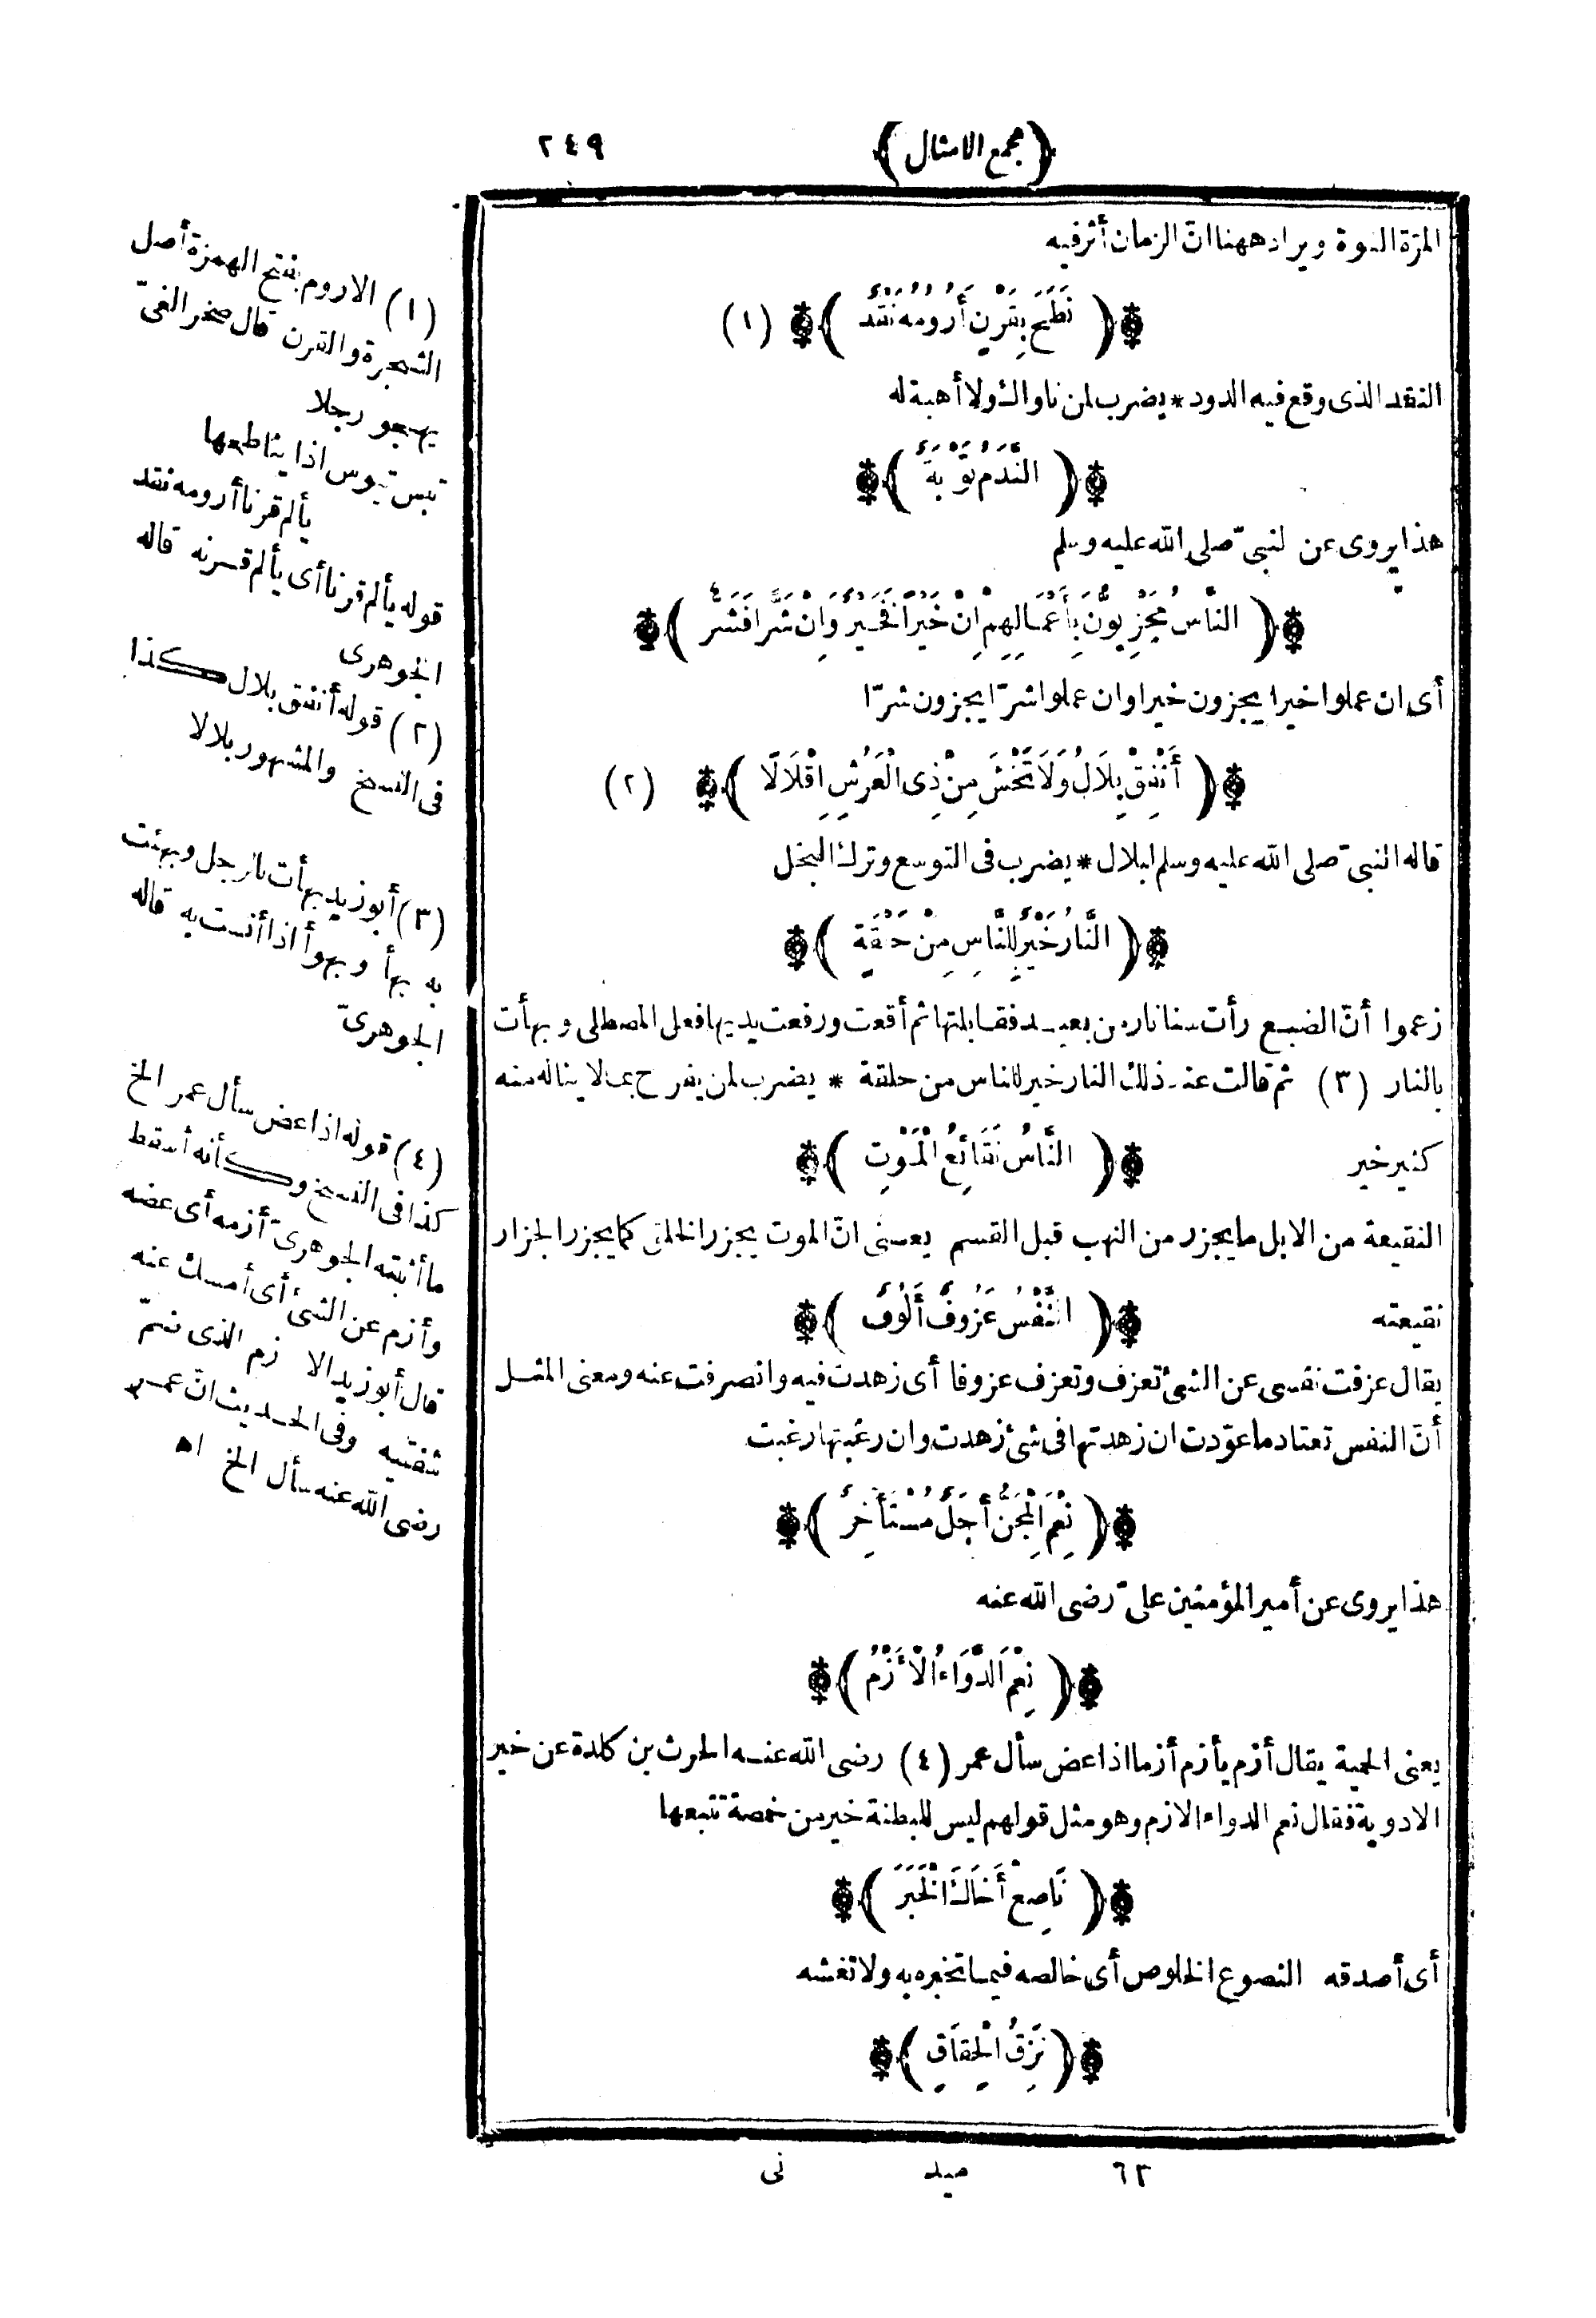 ﴿مجمع الامثال﴾
٢٤٩
المزة القوة ويراد ههنا انّ الزمان أثر فيه
﴿ نَطَحَ بِقَرْنٍ أَرُومُهُ نَقَدٌ ﴾ (١)
النقد الذى وقع فيه الدود * يضرب لمن ناواك ولا أهبة له
﴿ النَّدَمُ تَوْبَةٌ ﴾
هذا يروى عن النبىّ صلى الله عليه وسلم
﴿ النَّاسُ مَجْزِيُّونَ بِأَعْمَالِهِمْ اِنْ خَيْرًا فَخَيْرٌ وَاِنْ شَرًّا فَشَرٌّ ﴾
أى ان عملوا خيرا يجزون خيرا وان عملوا شرّا يجزون شرّا
﴿ أَنْفِقْ بِلَالُ وَلَا تَخْشَ مِنْ ذِى الْعَرْشِ اِقْلَالًا ﴾ (٢)
قاله النبىّ صلى الله عليه وسلم لبلال * يضرب فى التوسع وترك البخل
﴿ النَّارُ خَيْرٌ لِلنَّاسِ مِنْ حَلْقَةٍ ﴾
زعموا أنّ الضبع رأت سنا نار من بعيد فقابلتها ثم أقعت ورفعت يديها فعل المصطلى وبهأت
بالنار (٣) ثم قالت عند ذلك النار خير للناس من حلقة * يضرب لمن يفرح بما لا يناله منه
كثير خير ﴿ النَّاسُ نَقَائِعُ الْمَوْتِ ﴾
النقيعة من الابل ما يجزر من النهب قبل القسم يعنى انّ الموت يجزر الخلق كما يجزر الجزار
نقيعته ﴿ النَّفْسُ عَزُوفٌ أَلُوفٌ ﴾
يقال عزفت نفسى عن الشئ تعزف وتعزف عزوفا أى زهدت فيه وانصرفت عنه ومعنى المثل
أنّ النفس تعتاد ما عوّدت ان زهدتها فى شئ زهدت وان رغبتها رغبت
﴿ نِعْمَ الْمِجَنُّ أَجَلٌ مُسْتَأْخِرٌ ﴾
هذا يروى عن أمير المؤمنين علىّ رضى الله عنه
﴿ نِعْمَ الدَّوَاءُ الْأَزْمُ ﴾
يعنى الحمية يقال أزم يأزم أزما اذا عض سأل عمر (٤) رضى الله عنه الحرث بن كلدة عن خير
الادوية فقال نعم الدواء الازم وهو مثل قولهم ليس للبطنة خير من خمصة تتبعها
﴿ نَاصِعْ أَخَاكَ الْخَبَرَ ﴾
أى أصدقه النصوع الخلوص أى خالصه فيما تخبره به ولا تغشه
﴿ نَزِقُ الْحِقَاقِ ﴾
٦٢ ميد نى
(١) الاروم بفتح الهمزة أصل
الشجرة والقرن قال صخر الغىّ
يهجو رجلا
تيس تيوس اذا يناطحها
يألم قرنا أرومه نقد
قوله يألم قرنا أى يألم قرنه قاله
الجوهرى
(٢) قوله أنفق بلال كذا
فى النسخ والمشهور بلالا
(٣) أبو زيد بهأت بالرجل وبهئت
به بهأ وبهوأ اذا أنست به قاله
الجوهرىّ
(٤) قوله اذا عض سأل عمر الخ
كذا فى النسخ وكأنه أسقط
ما أثبته الجوهرىّ أزمه أى عضه
وأزم عن الشئ أى أمسك عنه
قال أبو زيد الازم الذى ضمّ
شفتيه وفى الحديث انّ عمر
رضى الله عنه سأل الخ اه